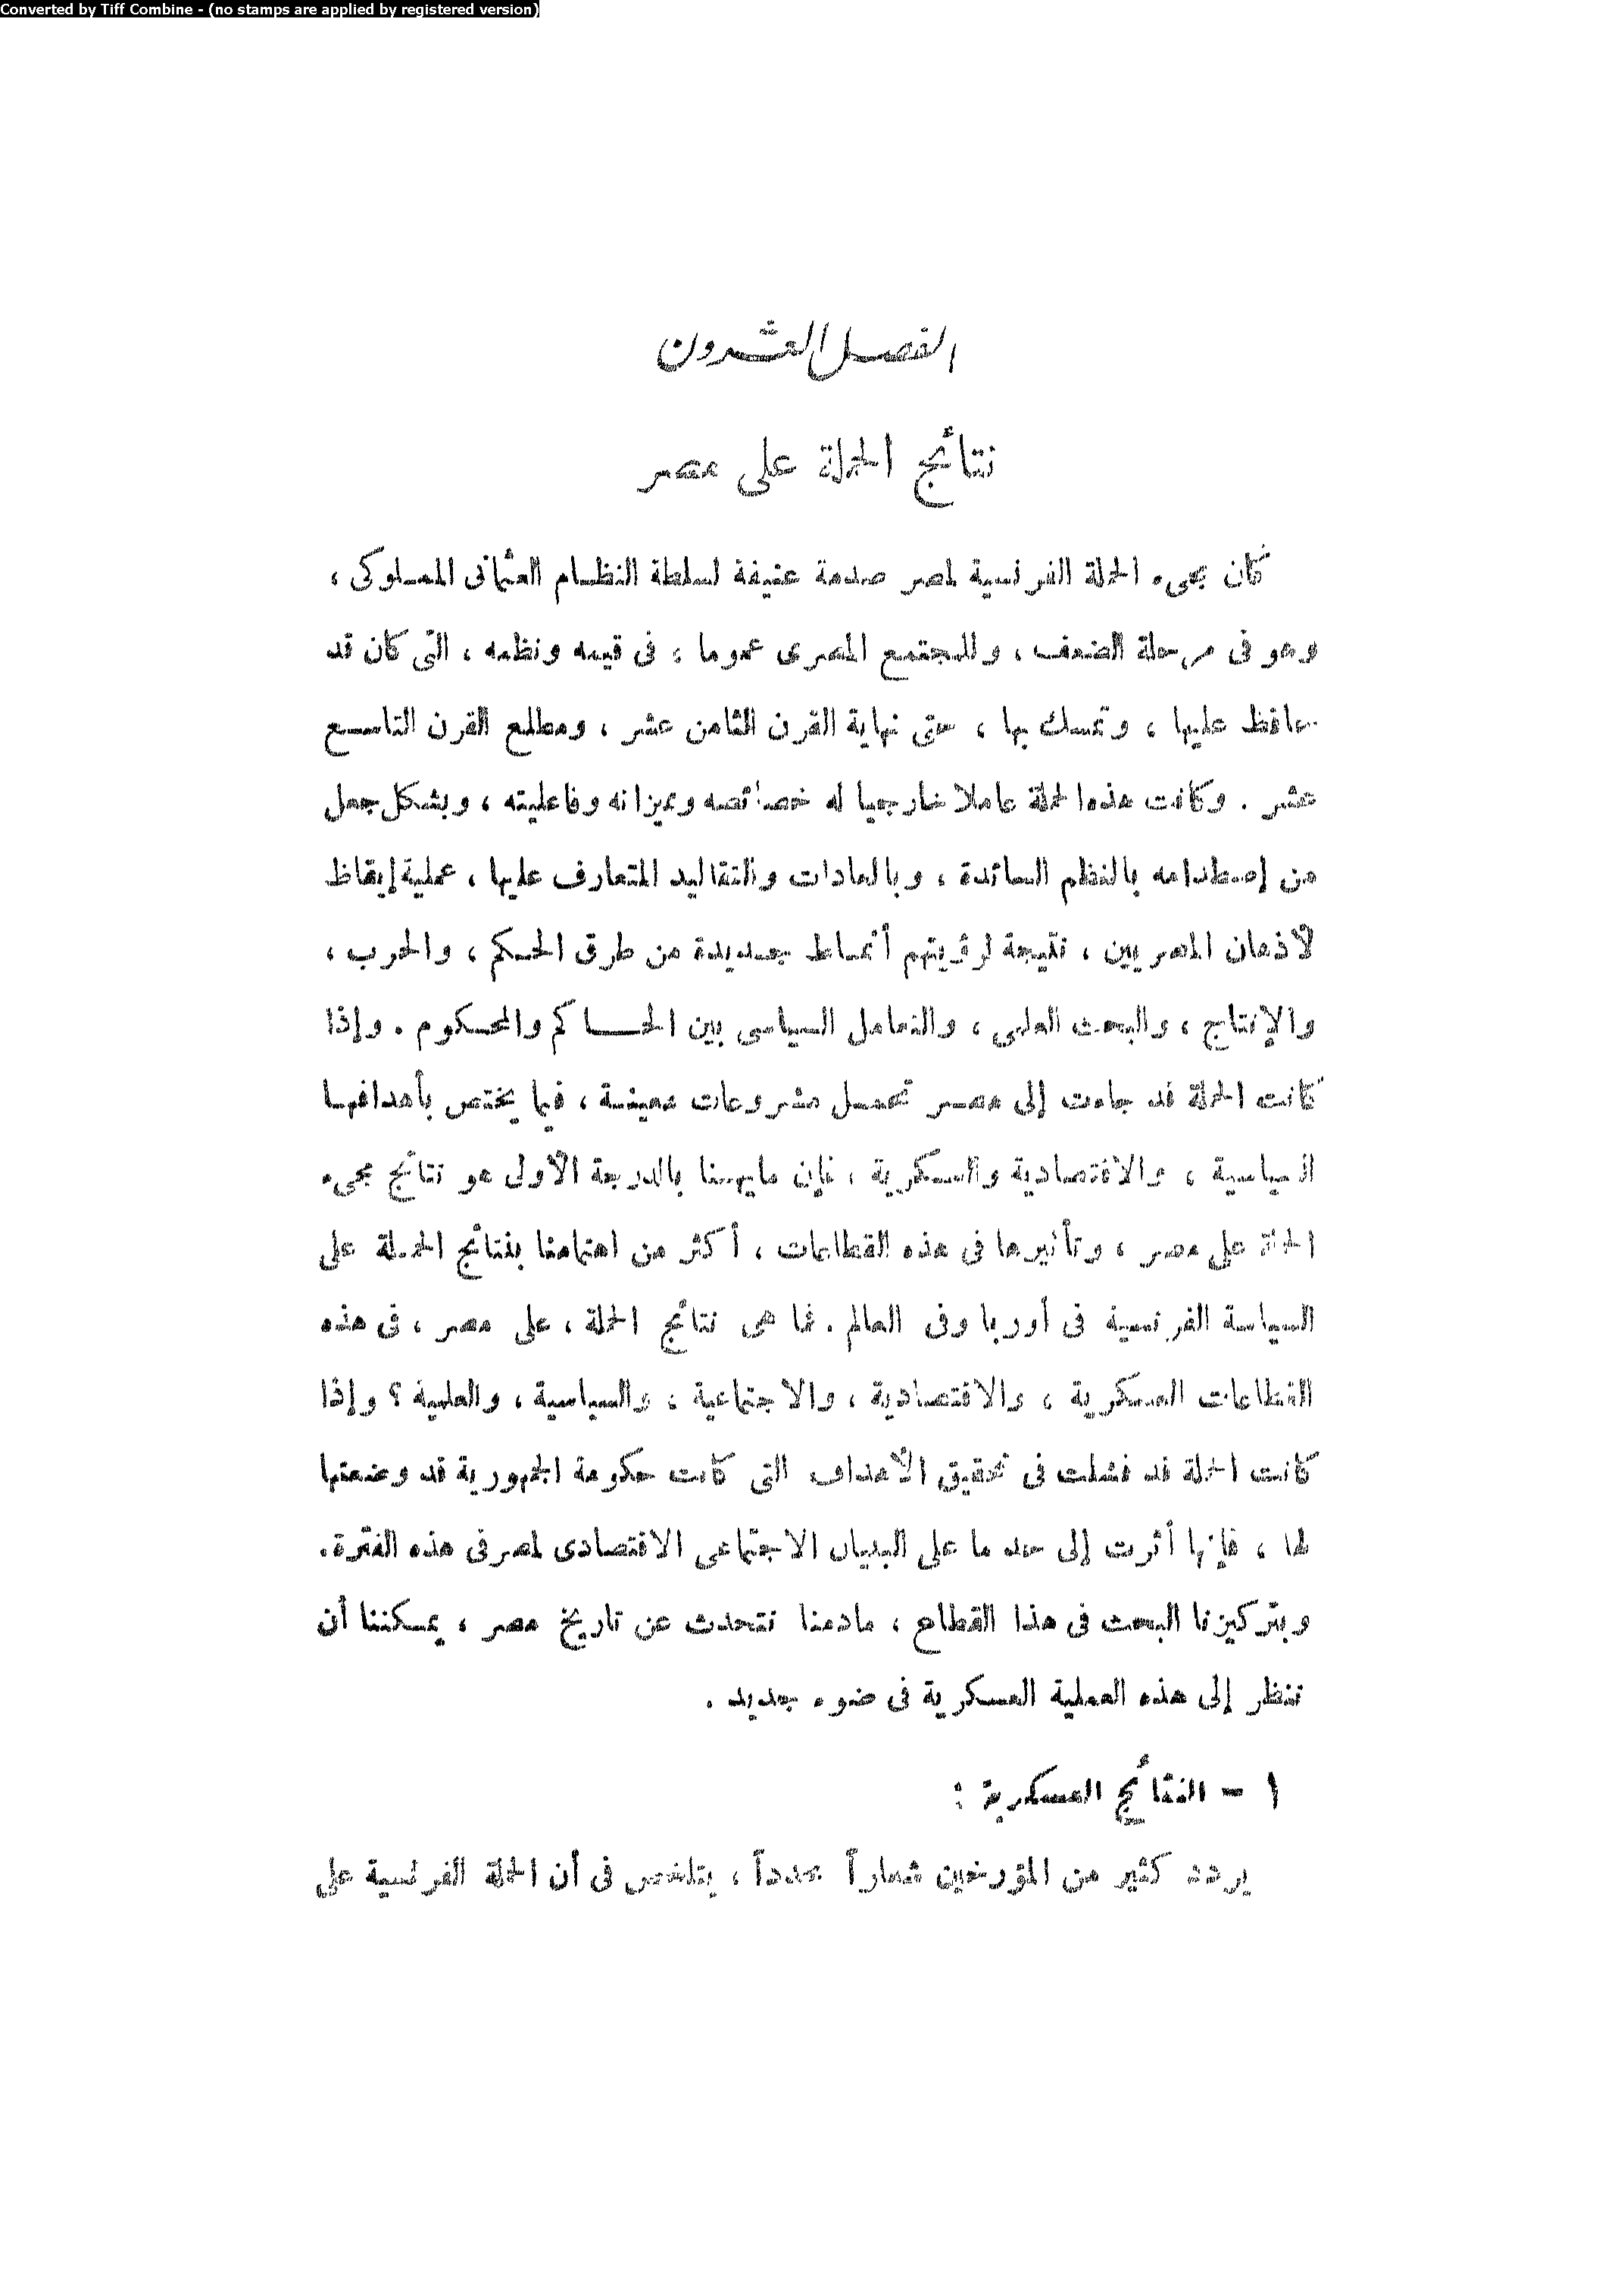 Converted by Tiff Combine - (no stamps are applied by registered version)
الفصل العشرون
نتائج الحملة على مصر
كان مجىء الحملة الفرنسية لمصر صدمة عنيفة لسلطة النظام العثمانى المملوكى ،
وهو فى مرحلة الضعف ، وللمجتمع المصرى عموما ، فى قيمه ونظمه ، التى كان قد
حافظ عليها ، وتمسك بها ، حتى نهاية القرن الثامن عشر ، ومطلع القرن التاسع
عشر . وكانت هذه الحملة عاملا خارجيا له خصائصه ومميزاته وفاعليته ، وبشكل جعل
من إصطدامه بالنظم السائدة ، وبالعادات والتقاليد المتعارف عليها ، عملية إيقاظ
لأذهان المصريين ، نتيجة لرؤيتهم أنماط جديدة من طرق الحكم ، والحرب ،
والإنتاج ، والبحث العلمى ، والتعامل السياسى بين الحاكم والمحكوم . وإذا
كانت الحملة قد جاءت إلى مصر تحمل مشروعات معينة ، فيما يختص بأهدافها
السياسية ، والاقتصادية والعسكرية ، فإن مايهمنا بالدرجة الأولى هو نتائج مجىء
الحملة على مصر ، وتأثيرها فى هذه القطاعات ، أكثر من اهتمامنا بنتائج الحملة على
السياسة الفرنسية فى أوربا وفى العالم . فما هى نتائج الحملة ، على مصر ، فى هذه
القطاعات العسكرية ، والاقتصادية ، والاجتماعية ، والسياسية ، والعلمية ؟ وإذا
كانت الحملة قد فشلت فى تحقيق الأهداف التى كانت حكومة الجمهورية قد وضعتها
لها ، فإنها أثرت إلى حد ما على البنيان الاجتماعى الاقتصادى لمصر فى هذه الفترة .
وبتركيزنا البحث فى هذا القطاع ، مادمنا نتحدث عن تاريخ مصر ، يمكننا أن
ننظر إلى هذه العملية العسكرية فى ضوء جديد .
١ - النتائج العسكرية :
يردد كثير من المؤرخين شعاراً محدداً ، يتلخص فى أن الحملة الفرنسية على